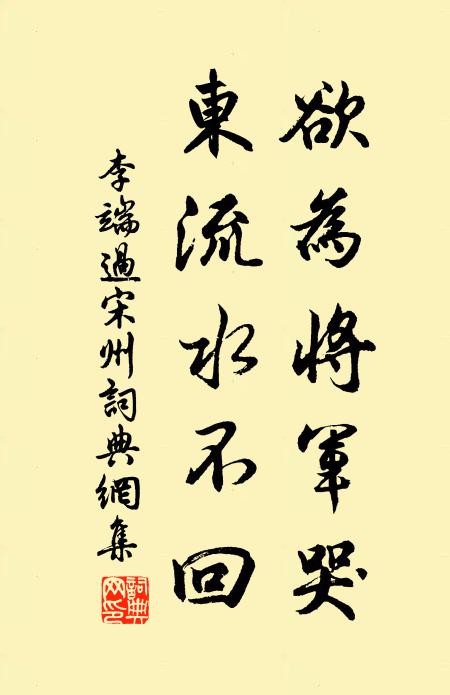 欲為將軍哭
東流水不回
李端過宋州詞典網集
詞典
网印